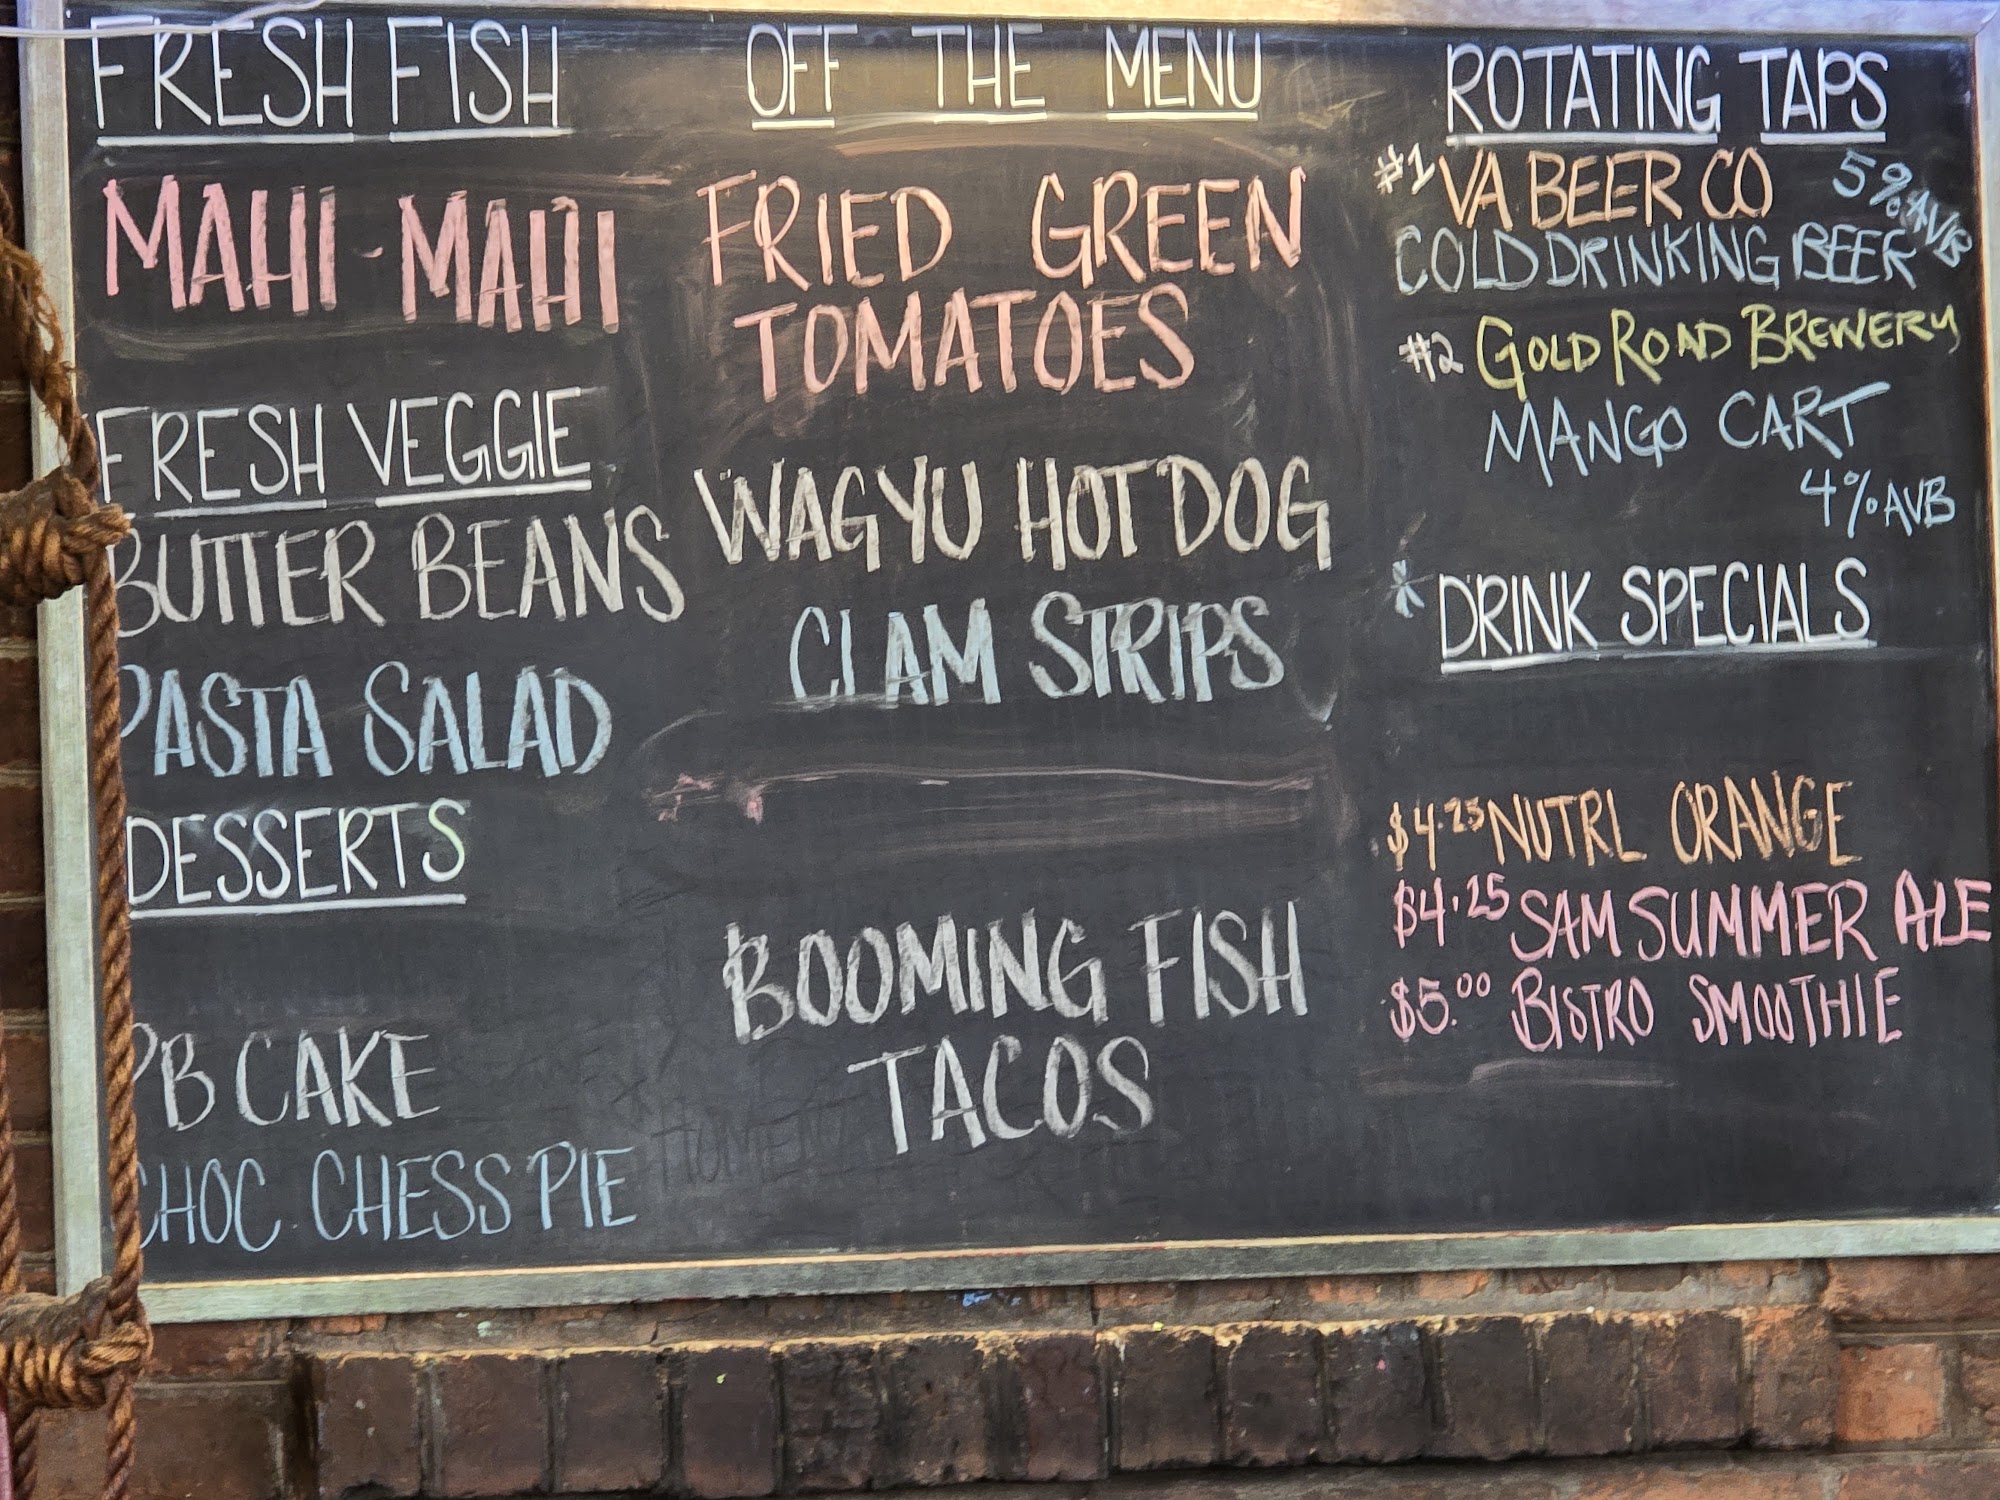 FRESH FISH
MAHI-MAHI
FRESH VEGGIE
BUTTER BEANS
PASTA SALAD
DESSERTS
PB CAKE
CHOC CHESS PIE
OFF THE MENU
FRIED GREEN
TOMATOES
WAGYU HOT DOG
CLAM STRIPS
BOOMING FISH
TACOS
ROTATING TAPS
#1 VA BEER CO 5% AVB
COLD DRINKING BEER
#2 GOLD ROAD BREWERY
MANGO CART
4% AVB
* DRINK SPECIALS
$4.25 NUTRL ORANGE
$4.25 SAM SUMMER ALE
$5.00 BISTRO SMOOTHIE